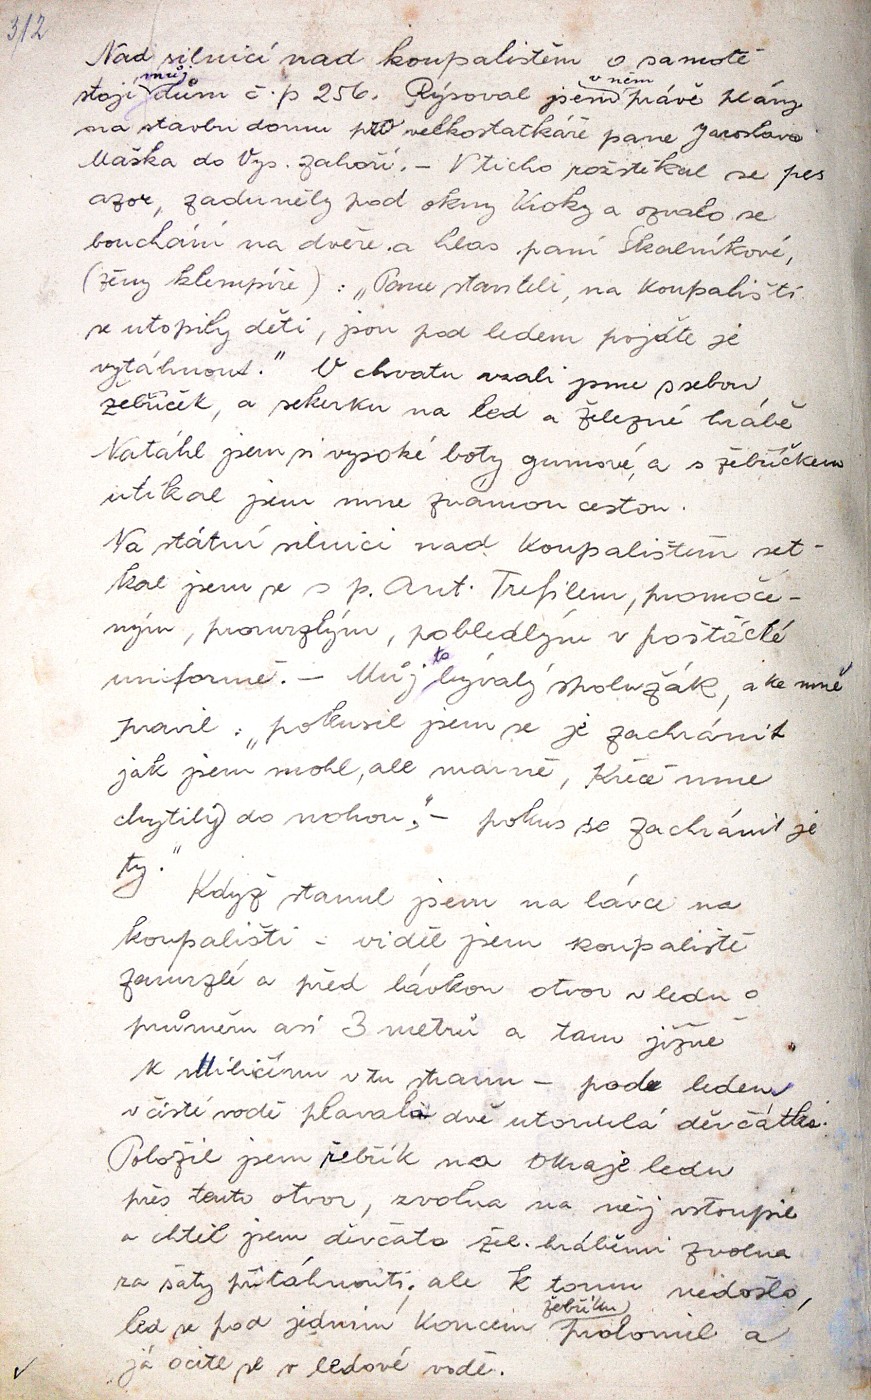 312
Nad silnicí nad koupalištěm o samotě
stojí můj dům č. p 256. Rýsoval jsem v něm právě plány
na stavbu domu pro velkostatkáře pana Jaroslava
Maška do Vys. Zahoří. – V ticho rozštěkal se pes
azor, zaduněly pod okny kroky a ozvalo se
bouchání na dveře a hlas paní Skalníkové,
(ženy klempíře) : „Pane staviteli, na koupališti
se utopily děti, jsou pod ledem pojďte je
vytáhnout." V chvatu vzali jsme s sebou
žebříček, a sekerku na led a železné hrábě
Natáhl jsem si vysoké boty gumové, a s žebříčkem
utíkal jsem mne známou cestou.
Na státní silnici nad Koupalištěm set-
kal jsem se s p. Ant. Trefilem, promoče-
ným, promrzlým, pobledlým v pošťácké
uniformě. – Můj to bývalý spolužák, a ke mně
pravil : „pokusil jsem se je zachránit
jak jsem mohl, ale marně, Křeč mne
chytily do nohou," – pokus se zachránit je
ty."
Když stanul jsem na lávce na
koupališti – viděl jsem koupaliště
zamrzlé a před lávkou otvor v ledu o
průměru asi 3 metrů a tam jižně
k Miličímu v tu stranu – pode ledem
v čisté vodě plavala dvě utonulá děvčátka.
Položil jsem řebřík na okraje ledu
přes tento otvor, zvolna na něj vstoupil
a chtěl jsem děvčata žel. hráběmi zvolna
za šaty přitáhnouti; ale k tomu nedošlo,
led se pod jedním koncem žebříku prolomil a
já ocitl se v ledové vodě.